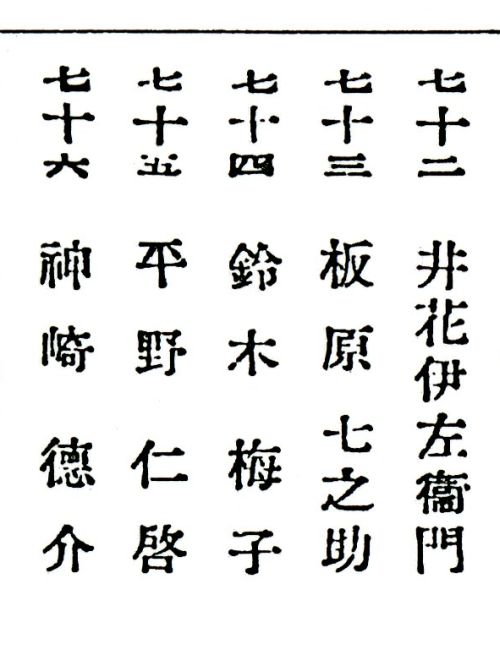 七十二 井花伊左衞門
七十三 板原七之助
七十四 鈴木梅子
七十五 平野仁啓
七十六 神崎德介